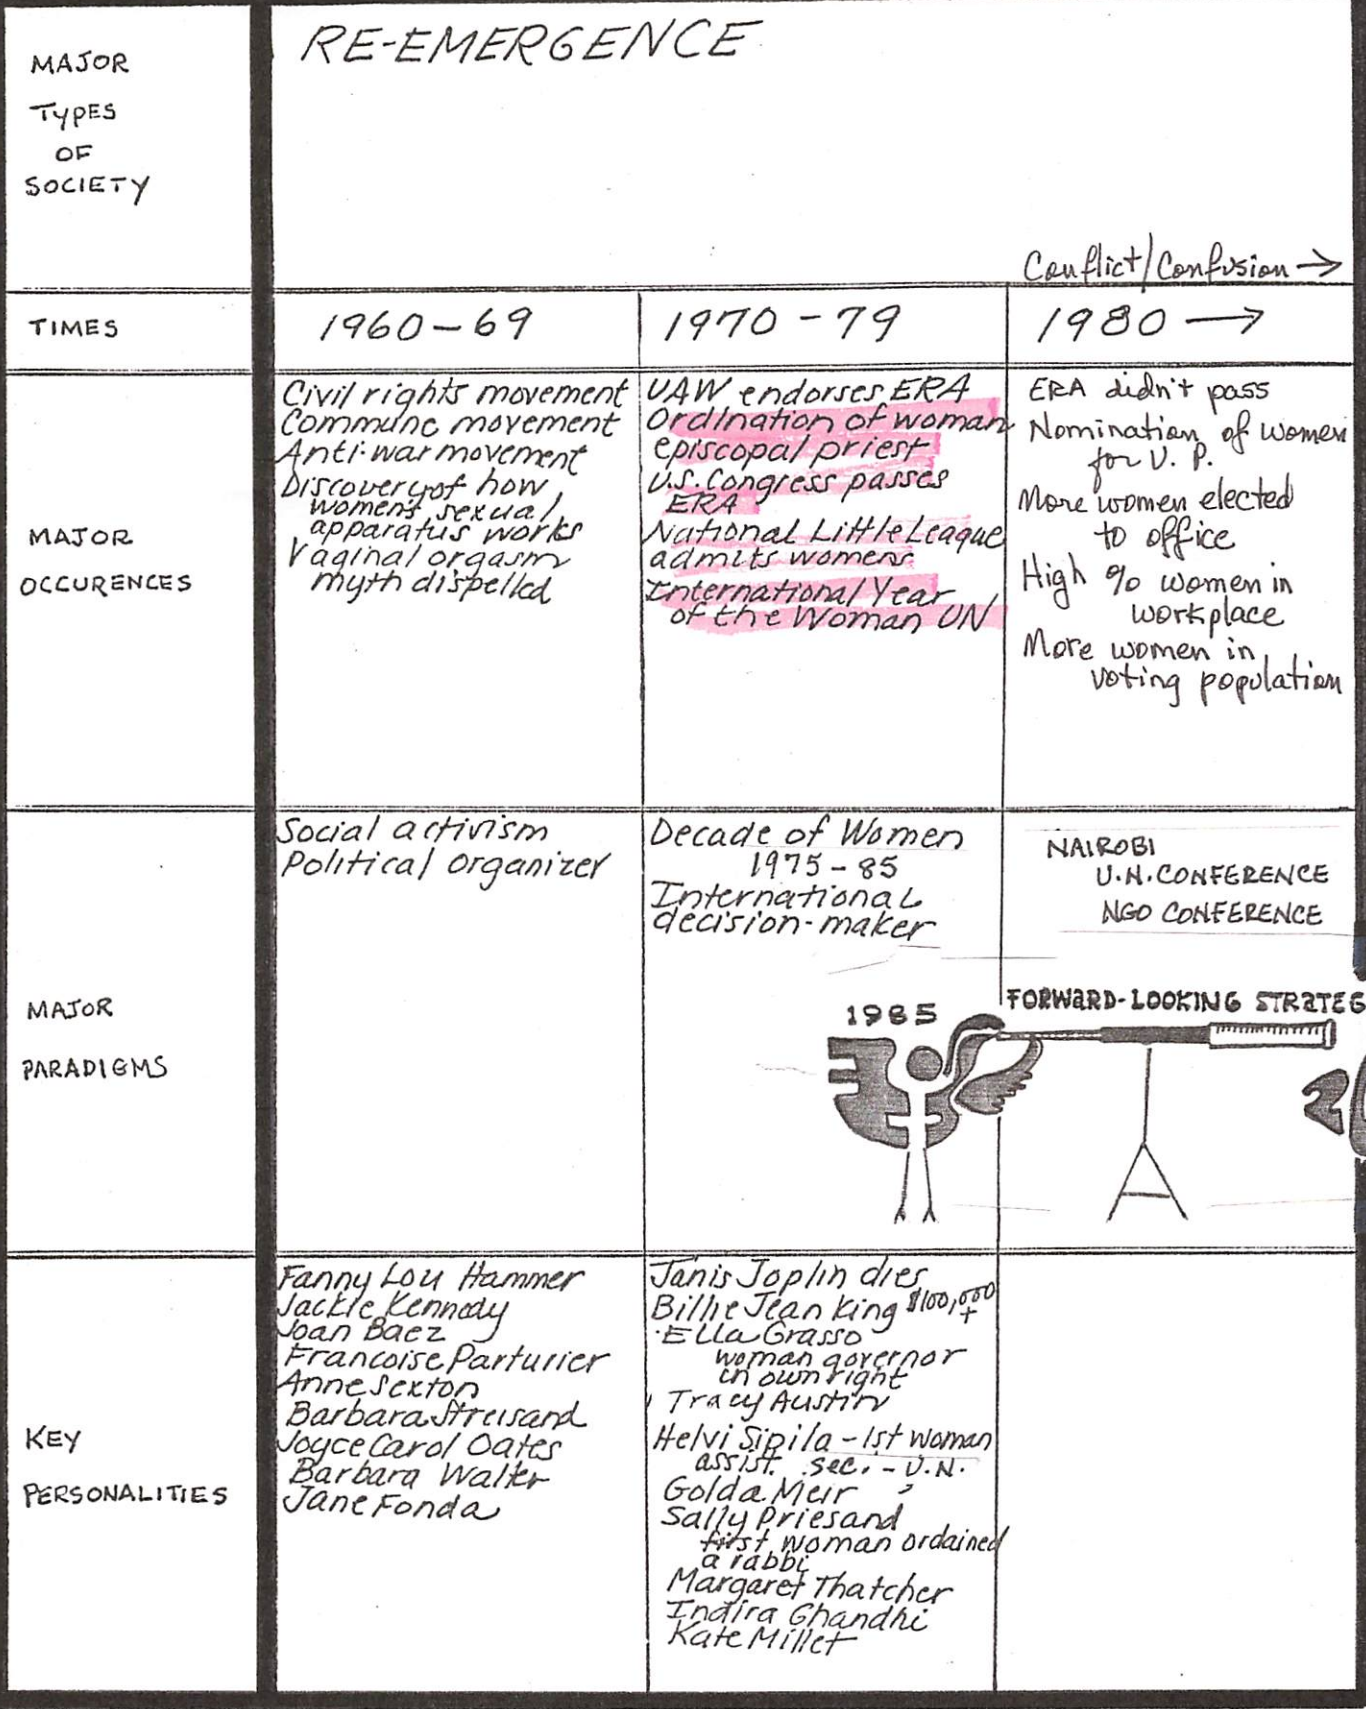 MAJOR
TYPES
OF
SOCIETY
RE-EMERGENCE
Conflict/Confusion →
TIMES
1960-69
1970-79
1980 →
MAJOR
OCCURENCES
Civil rights movement
Commune movement
Anti-war movement
Discovery of how
women's sexual
apparatus works
Vaginal orgasm
myth dispelled
UAW endorses ERA
Ordination of woman
episcopal priest
U.S. Congress passes
ERA
National Little League
admits womens
International Year
of the Woman UN
ERA didn't pass
Nomination of women
for V. P.
More women elected
to office
High % women in
workplace
More women in
voting population
MAJOR
PARADIGMS
Social activism
Political organizer
Decade of Women
1975-85
International
decision-maker
NAIROBI
U.N. CONFERENCE
NGO CONFERENCE
1985
FORWARD-LOOKING STRATEG
2
KEY
PERSONALITIES
Fanny Lou Hammer
Jackie Kennedy
Joan Baez
Francoise Parturier
Anne Sexton
Barbara Streisand
Joyce Carol Oates
Barbara Walter
Jane Fonda
Janis Joplin dies
Billie Jean King $100,000
+
Ella Grasso
woman governor
in own right
Tracy Austin
Helvi Sipila - 1st woman
assist. sec. - U.N.
Golda Meir
Sally Priesand
first woman ordained
a rabbi
Margaret Thatcher
Indira Ghandhi
Kate Millet